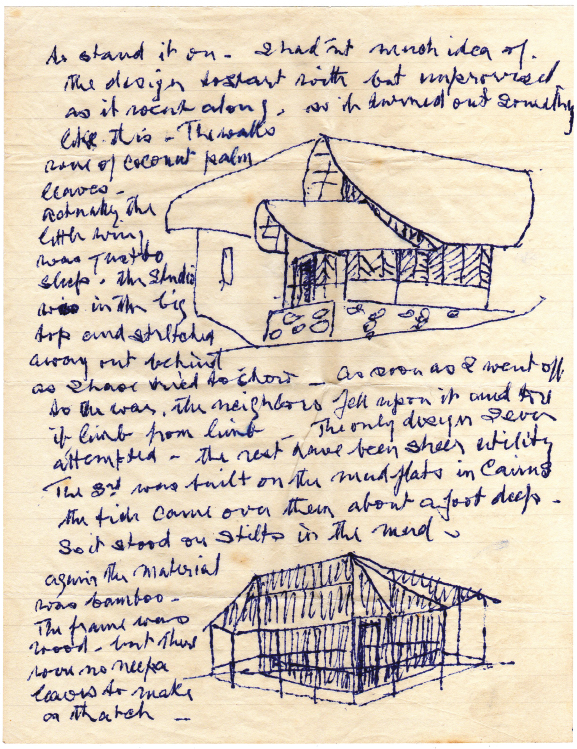 to stand it on - I hadn't much idea of
the design to start with but improvised
as it went along, so it turned out something
like this - The walls
were of coconut palm
leaves -
actually the
little wing
was just to
sleep - the studio
was in the big
top and stretched
away out behind
as I have tried to show - as soon as I went off
to the war, the neighbors fell upon it and tore
it limb from limb - The only design I ever
attempted - the rest have been sheer utility
The 3rd was built on the mudflats in Cairns
the tide came over them about a foot deep -
So it stood on stilts in the mud -
again the material
was bamboo -
The frame was
wood - but there
were no neepa
leaves to make
a thatch -